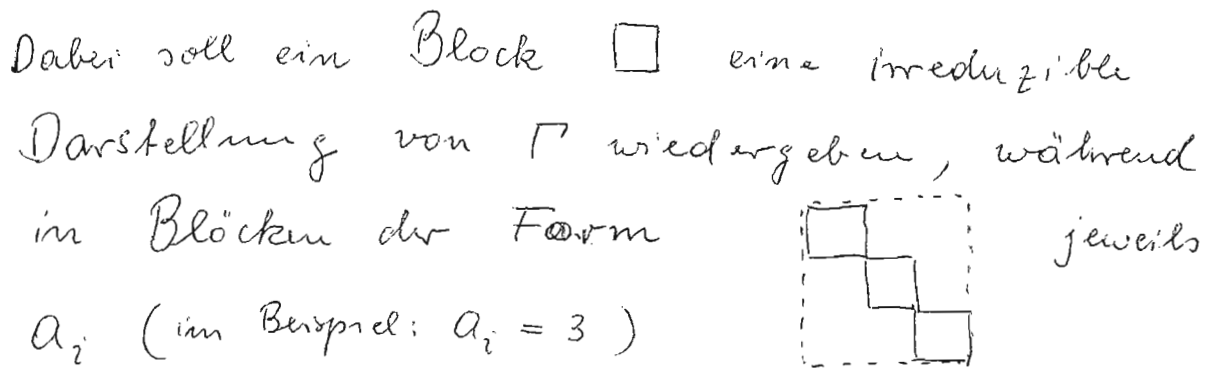 Dabei soll ein Block □ eine irreduzible
Darstellung von Γ wiedergeben, während
in Blöcken der Form jeweils
a_i (im Beispiel: a_i = 3)